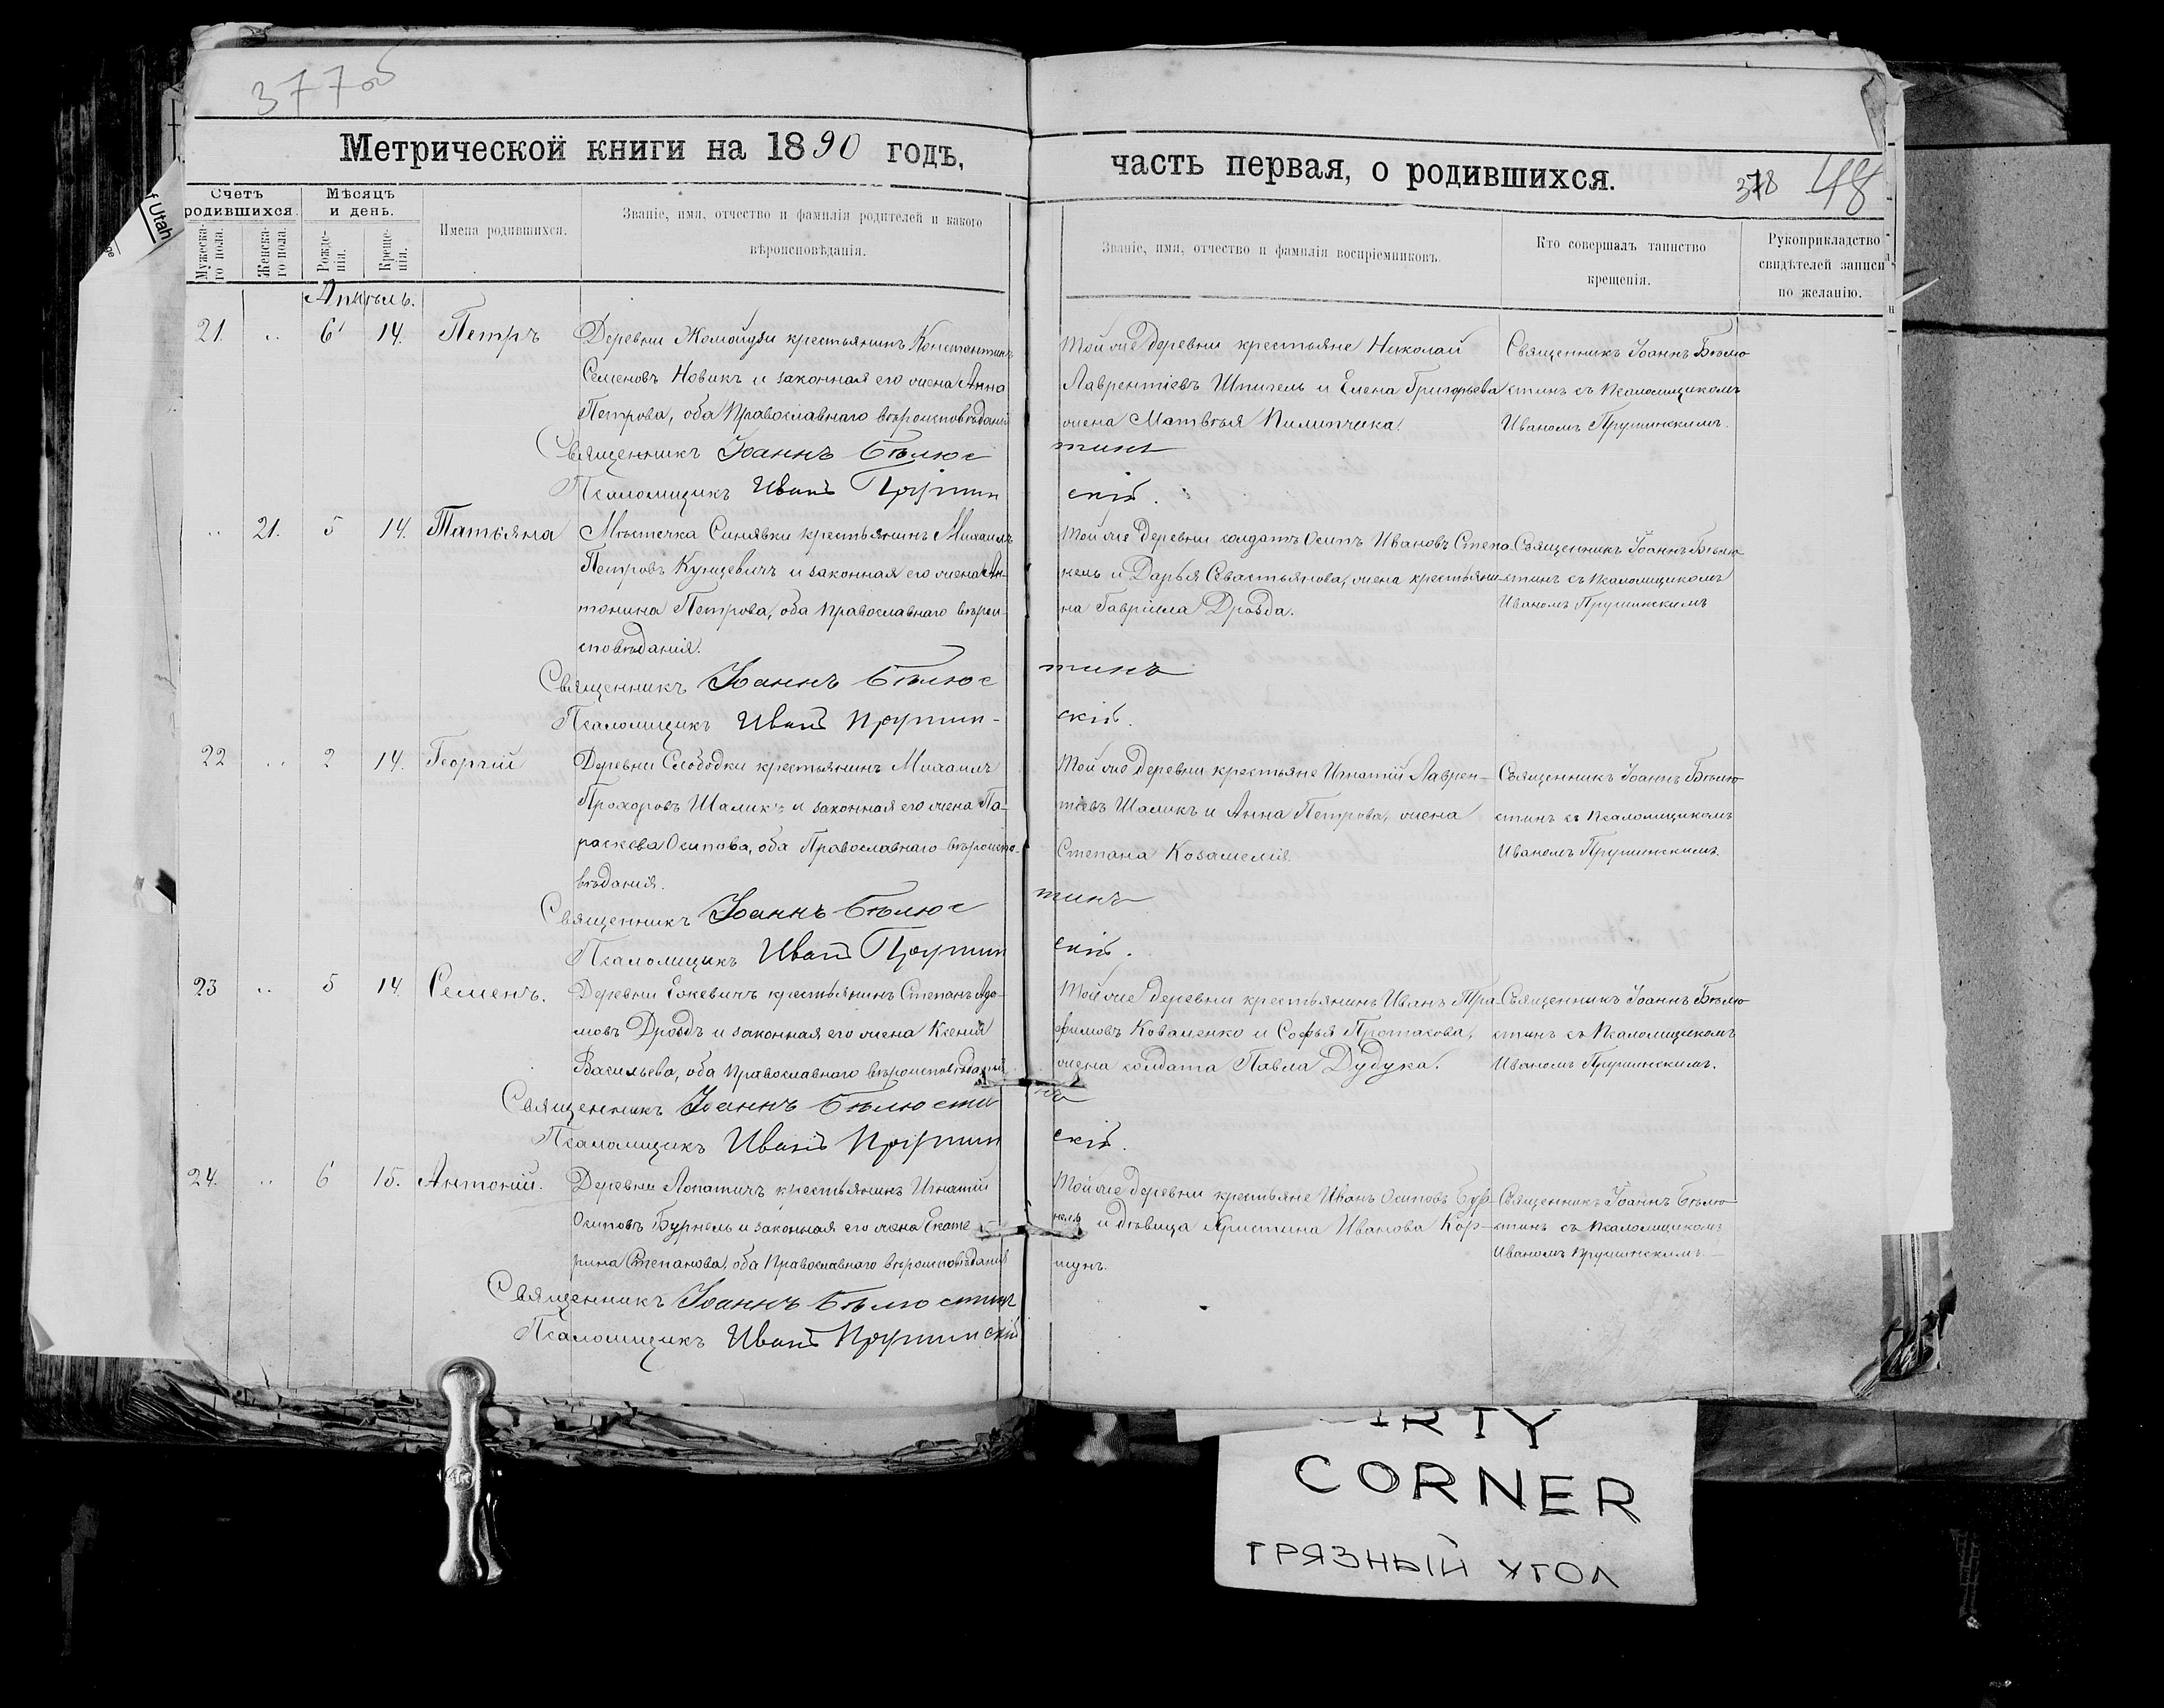 377об
Метрической книги на 1890 годъ,
часть первая, о родившихся.
378 48
Счетъ родившихся.
Мѣсяцъ и день.
Мужеска-го пола.
Женска-го пола.
Рожде-нія.
Креще-нія.
Имена родившихся.
Званіе, имя, отчество и фамилія родителей и какого
вѣроисповѣданія.
Званіе, имя, отчество и фамилія воспріемниковъ.
Кто совершалъ таинство
крещенія.
Рукоприкладство
свидѣтелей записи
по желанію.
Апрѣль.
21. .. 6 14. Петръ
Деревни Жомойдзи крестьянинъ Константинъ
Семеновъ Новикъ и законная его жена Анна
Петрова, оба Православнаго вѣроисповѣданія
Той же деревни крестьяне Николай
Лаврентіевъ Шпигель и Елена Григорьева
жена Матвѣя Пилипчика.
Священникъ Іоаннъ Бѣлю-
стинъ съ Псаломщикомъ
Иваномъ Прушинскимъ.
Священникъ Іоаннъ Бѣлюстинъ
Псаломщикъ Иванъ Прушинскій.
.. 21. 5 14. Татьяна
Мѣстечка Синявки крестьянинъ Михаилъ
Петровъ Кунцевичъ и законная его жена Ан-
тонина Петрова, оба Православнаго вѣрои-
сповѣданія.
Той же деревни солдатъ Осипъ Ивановъ Степа-
нель и Дарья Севастьянова, жена крестьяни-
на Гавріила Дрозда.
Священникъ Іоаннъ Бѣлю-
стинъ съ Псаломщикомъ
Иваномъ Прушинскимъ
Священникъ Іоаннъ Бѣлюстинъ
Псаломщикъ Иванъ Прушин-скій.
22 .. 2 14. Георгій
Деревни Слободки крестьянинъ Михаилъ
Прохоровъ Шаликъ и законная его жена Па-
раскева Осипова, оба Православнаго вѣроиспо-
вѣданія.
Той же деревни крестьяне Игнатій Лаврен-
тіевъ Шаликъ и Анна Петрова, жена
Степана
Священникъ Іоаннъ Бѣлю-
стинъ съ Псаломщикомъ
Иваномъ Прушинскимъ.
Священникъ Іоаннъ Бѣлюстинъ
Псаломщикъ Иванъ Прушинскій.
23 .. 5 14. Семенъ.
Деревни Ескевичъ крестьянинъ Степанъ Ада-
мовъ Дроздъ и законная его жена Ксенія
Васильева, оба Православнаго вѣроисповѣданія
Той же деревни крестьянинъ Иванъ Тра-
фимовъ Коваленко и Софья Протасова,
жена солдата Павла Дудука.
Священникъ Іоаннъ Бѣлю-
стинъ съ Псаломщикомъ
Иваномъ Прушинскимъ.
Священникъ Іоаннъ Бѣлюстинъ
Псаломщикъ Иванъ Прушинскій.
24. .. 6 15. Антоній.
Деревни Лопатичъ крестьянинъ Игнатій
Осиповъ Бурнель и законная его жена Екате-
рина Степанова, оба Православнаго вѣроисповѣданія
Той же деревни крестьяне Иванъ Осиповъ Бур-
нель и дѣвица Христина Иванова Кор-
шунъ.
Священникъ Іоаннъ Бѣлю-
стинъ съ Псаломщикомъ
Иваномъ Прушинскимъ.
Священникъ Іоаннъ Бѣлюстинъ
Псаломщикъ Иванъ Прушинскій
f Utah
CORNER
ГРЯЗНЫЙ УГОЛ